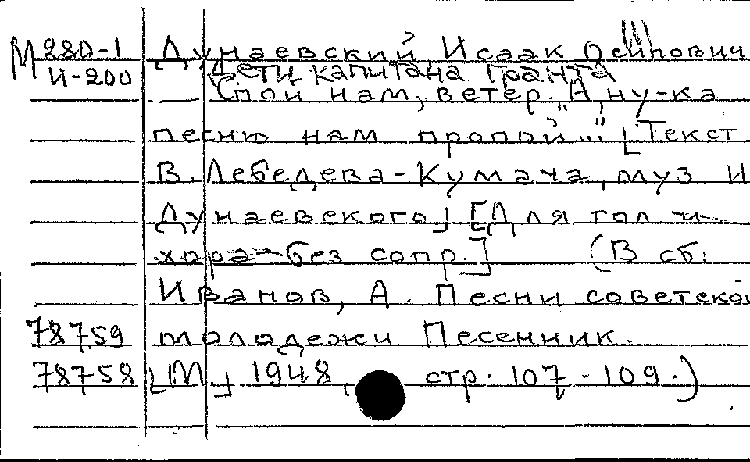 М 280-1 Дунаевский Исаак Осипович
И-200 Дети капитана Гранта
Спой нам, ветер „А ну-ка
песню нам пропой..." [Текст
В. Лебедева-Кумача, муз И
Дунаевского] [Для гол и
хора без сопр.] (В сб:
Иванов, А. Песни советской
78759 молодежи Песенник.
78758 [М] 1948, стр. 107-109.)